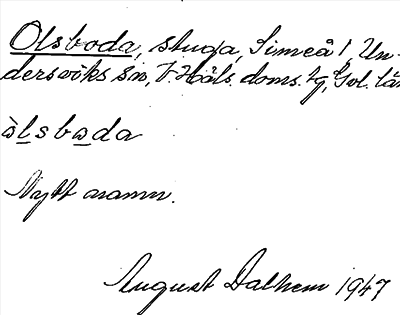 Olsboda, stuga, Simeå, Un-
dersviks sn, V. Häls. doms. tg, Gvl. län
àlsbada
Nytt namn.
August Dalhem 1947